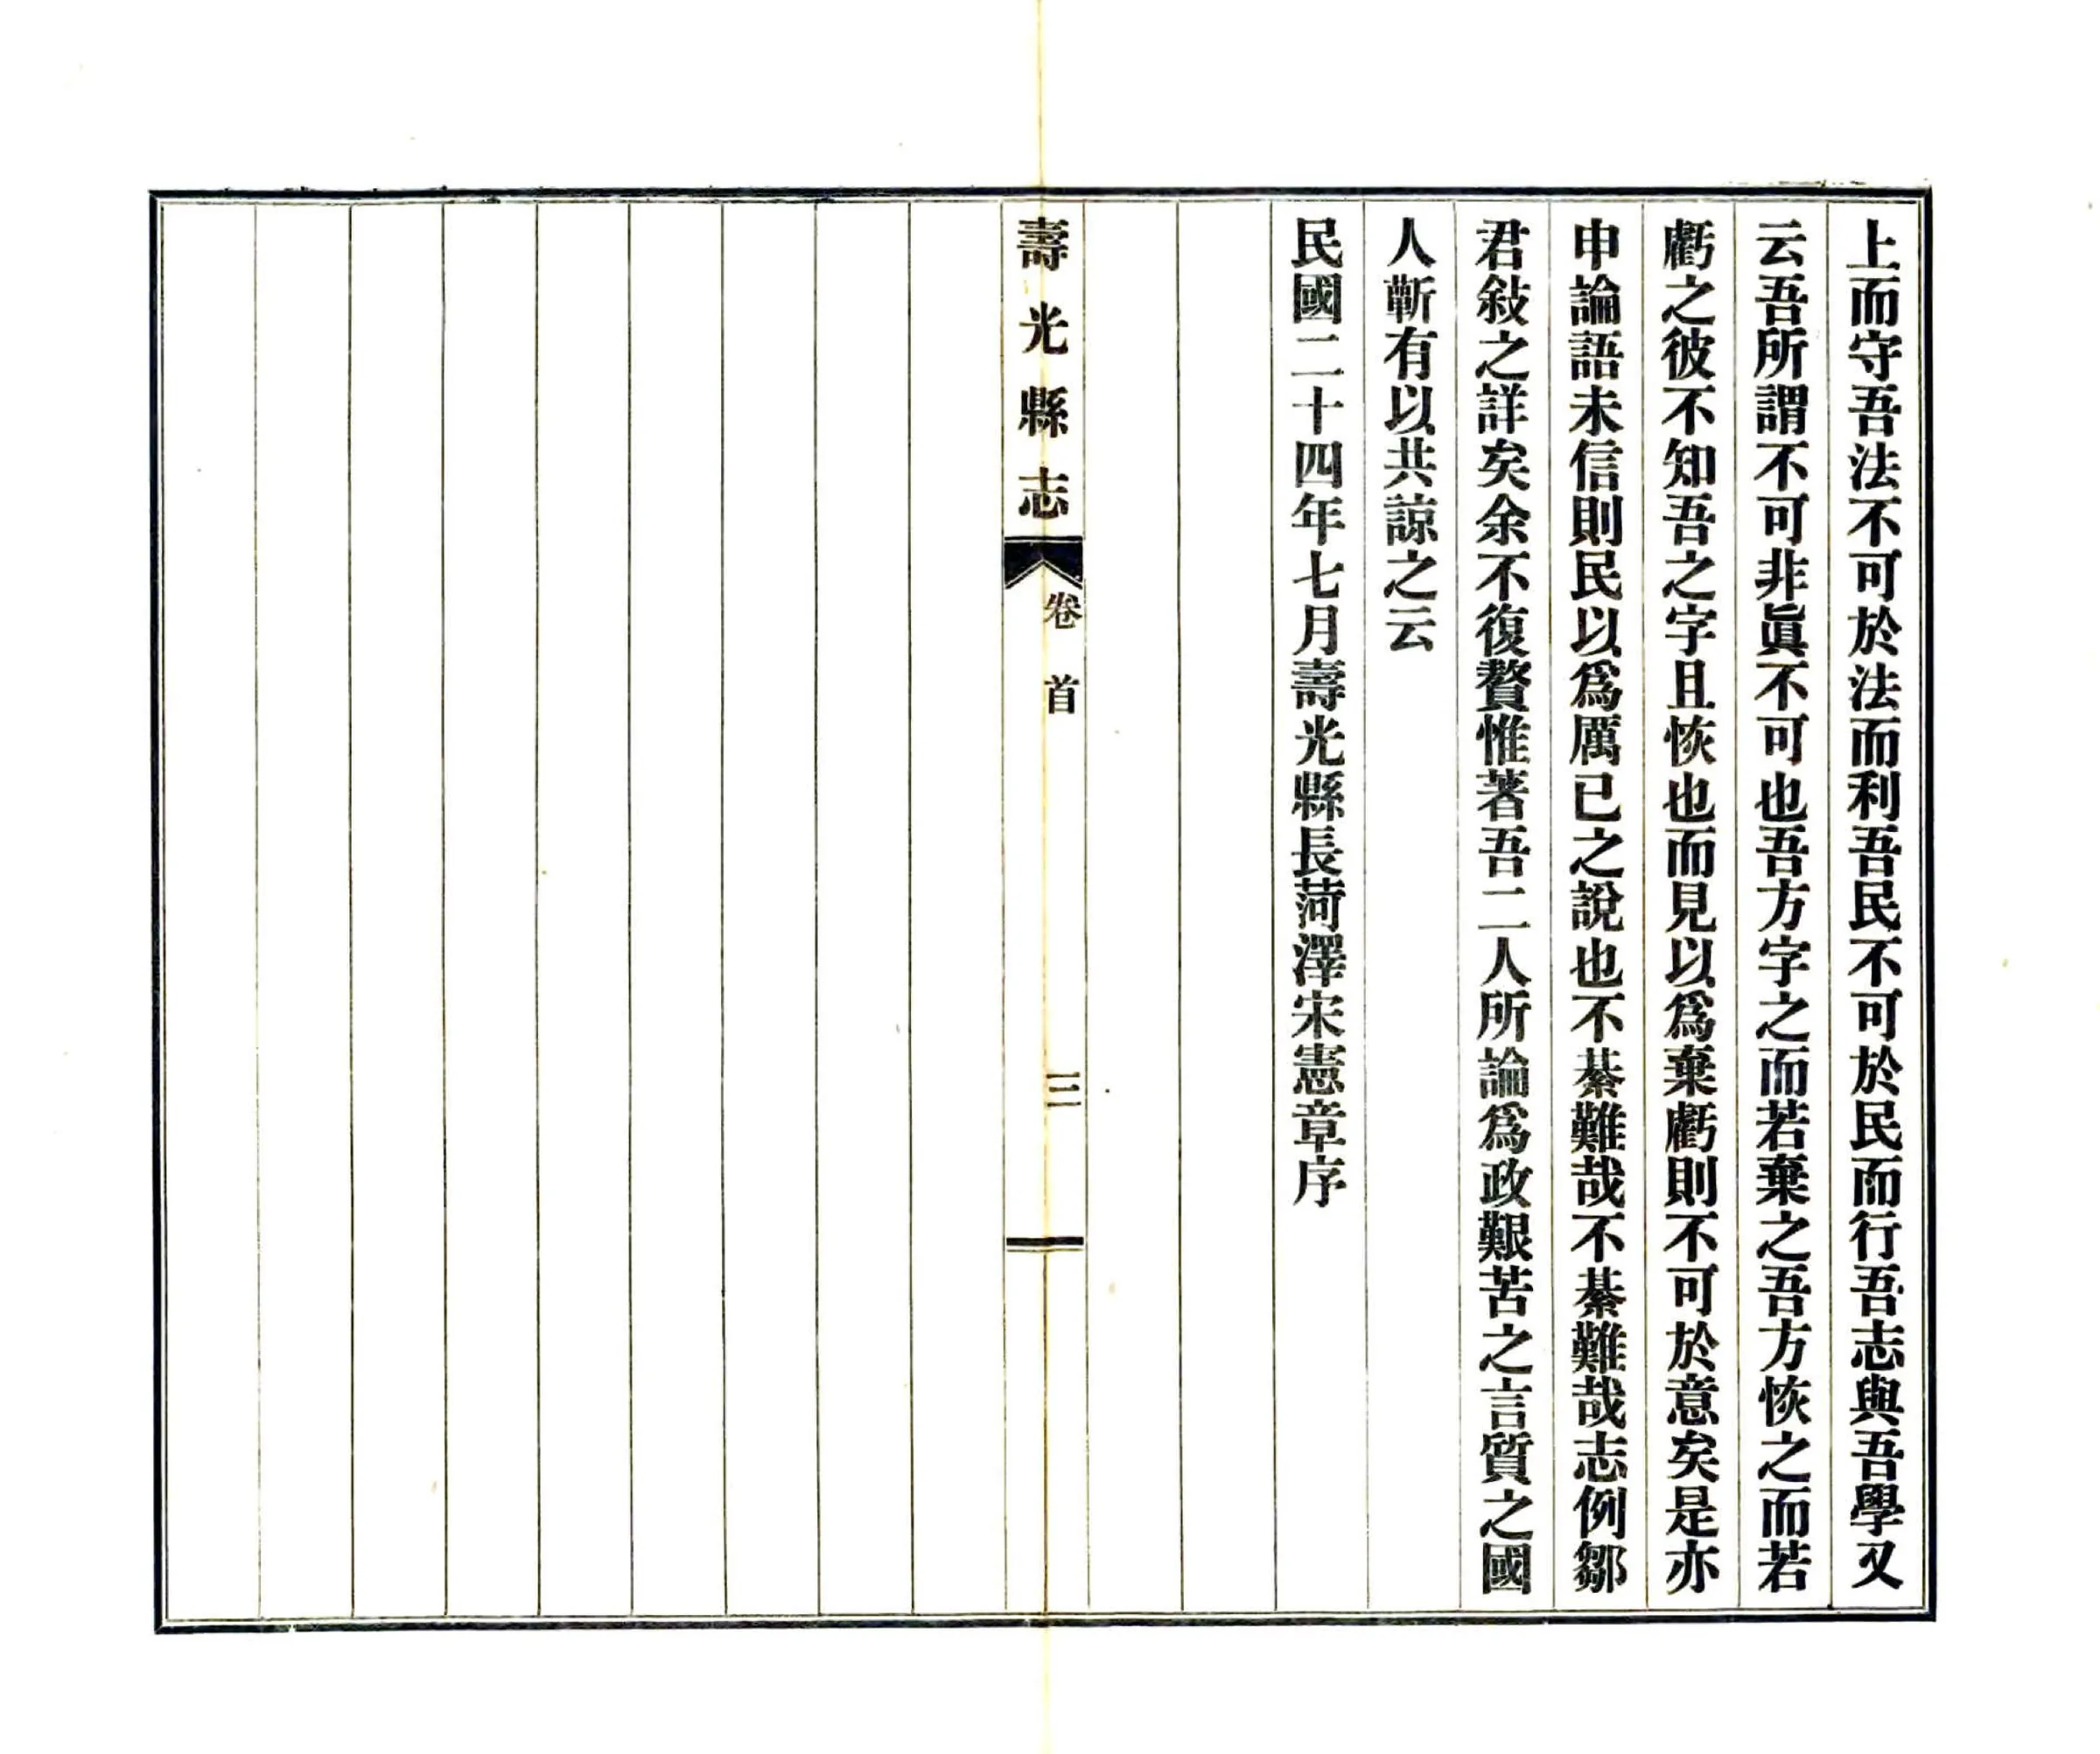 上而守吾法不可於法而利吾民不可於民而行吾志與吾學又
云吾所謂不可非眞不可也吾方字之而若棄之吾方恢之而若
虧之彼不知吾之字且恢也而見以爲棄虧則不可於意矣是亦
申論語未信則民以爲厲已之說也不綦難哉不綦難哉志例鄒
君敍之詳矣余不復贅惟著吾二人所論爲政艱苦之言質之國
人蘄有以共諒之云
民國二十四年七月壽光縣長菏澤宋憲章序
壽光縣志
卷首
三